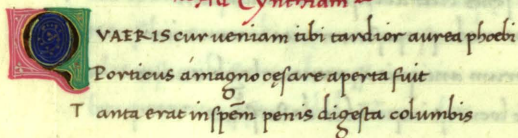 Ad Cynthiam
QVAERIS cur ueniam tibi tardior aurea phoebi
Porticus á magno cęsare aperta fuit
T anta erat in spẽm penis digesta columbis